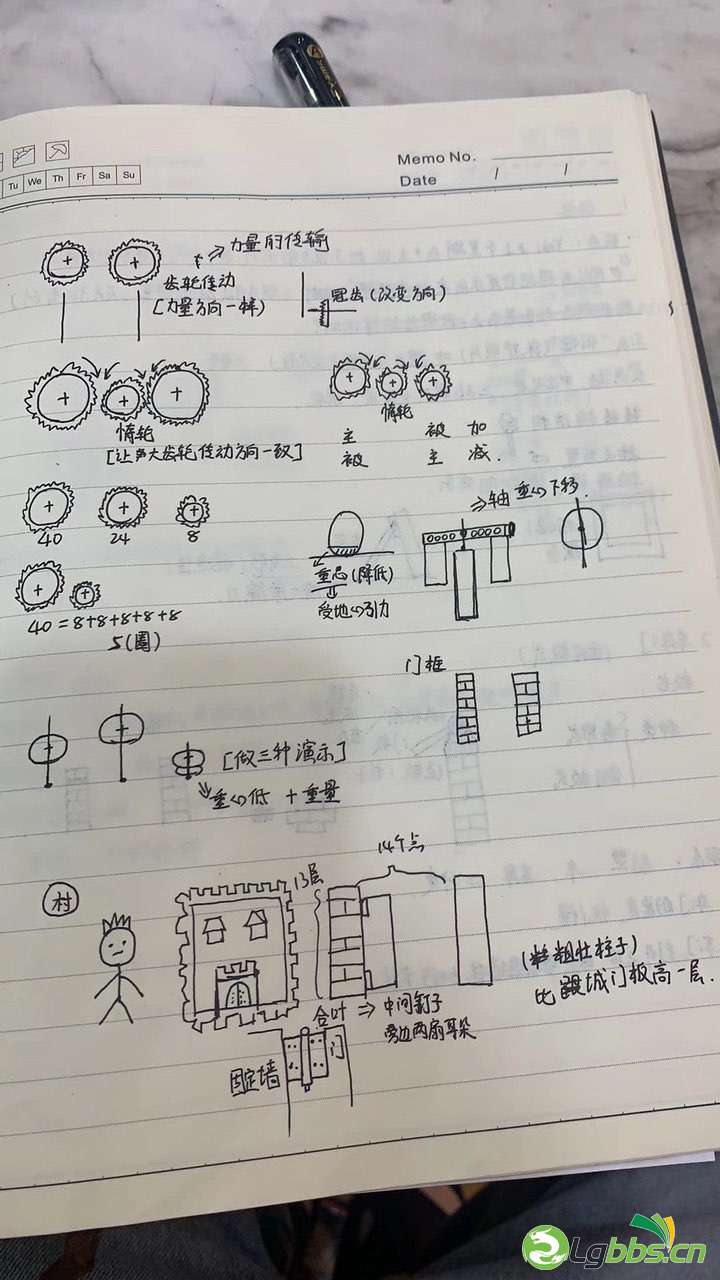 Memo No.
Tu We Th Fr Sa Su
Date / /
力量的传输
齿轮传动
[力量方向一样)
冠齿(改变方向)
惰轮
[让两大齿轮传动方向一致]
惰轮
主 被 加
被 主 减.
40 24 8
⇒轴重心下移.
(降低)
受地心引力
40=8+8+8+8+8
5(圈)
门框
[做三种演示]
重心低 + 重量
村
13层
14个点
(粗壮柱子)
比城门板高一层.
合叶 ⇒ 中间钉子
旁边两扇耳朵
固定墙
门
Lgbbs.cn